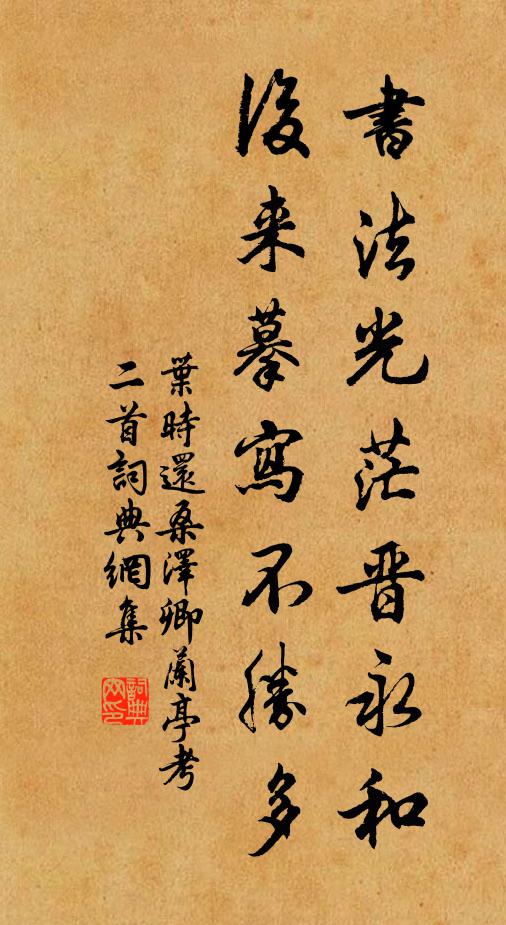 書法光茫晋永和
後来摹寫不勝多
葉時還桑澤卿蘭亭考
二首詞典網集
詞典網印